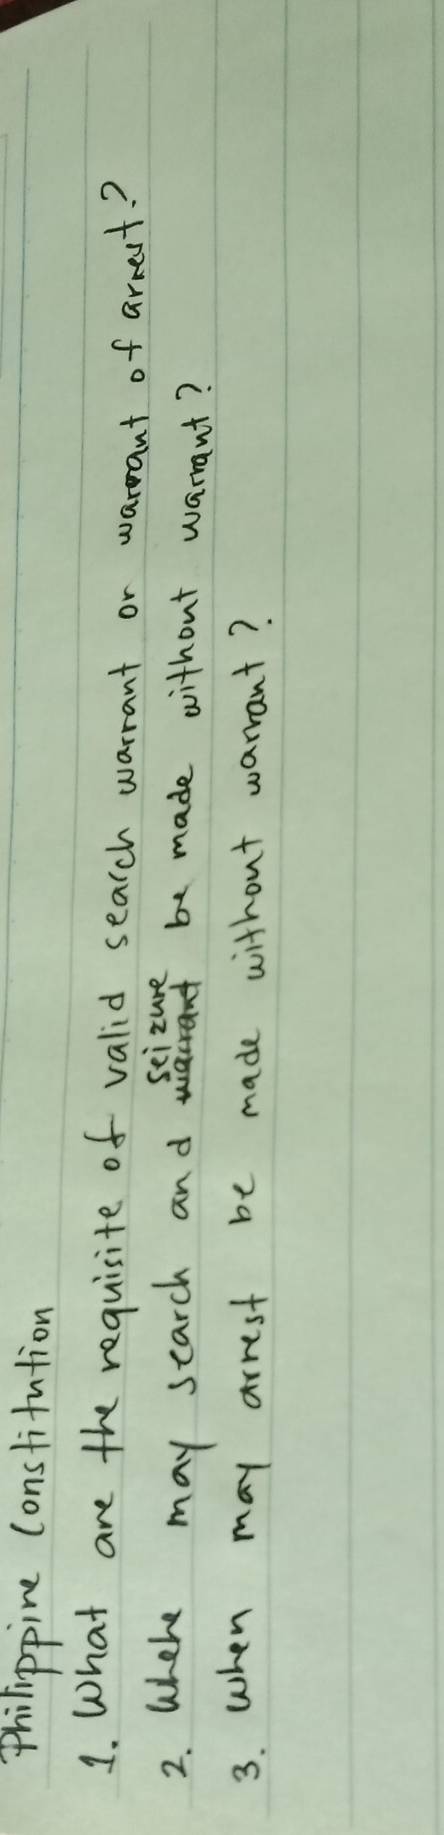 Philippine Constitution
1. What are the requisite of valid search warrant or warrant of arrest?
2. Where may search and seizure be made without warrant?
3. When may arrest be made without warrant?